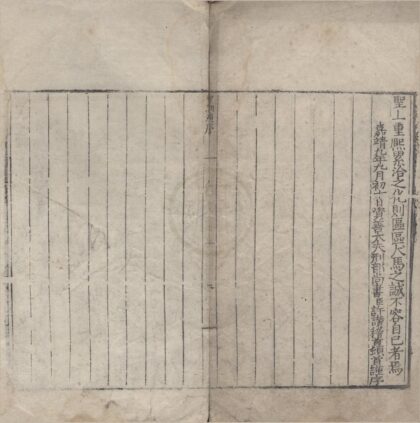 聖上重熙累洽之化則區區犬馬之誠不容自已者焉
嘉靖九年九月初一日資善大夫刑部尚書臣許讚稽首頓首謹序
序